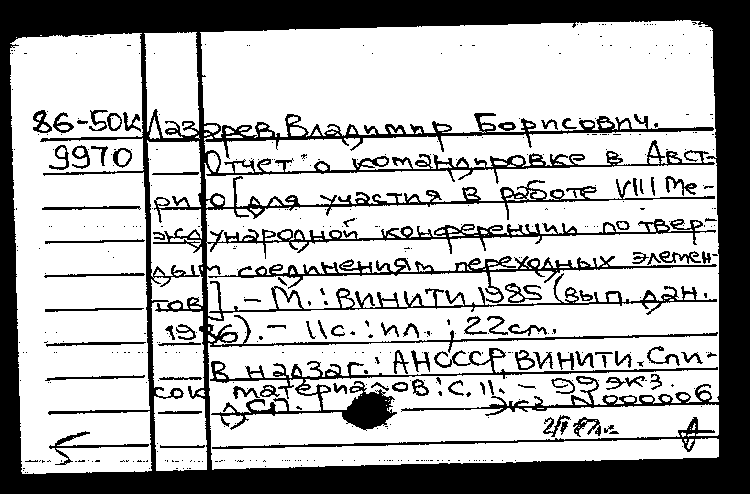 86-50К Лазарев, Владимир Борисович.
9970 Отчет о командировке в Авст-
рию [для участия в работе VIII Ме-
ждународной конференции по твер-
дым соединениям переходных элемен-
тов]. – М. : ВИНИТИ, 1985 (вып. дан.
1986). – 11с. : ил. ; 22см.
В надзаг.: АН СССР, ВИНИТИ. Спи-
сок материалов: с. 11. – 99 экз.
ДСП. Экз N 000006.
5